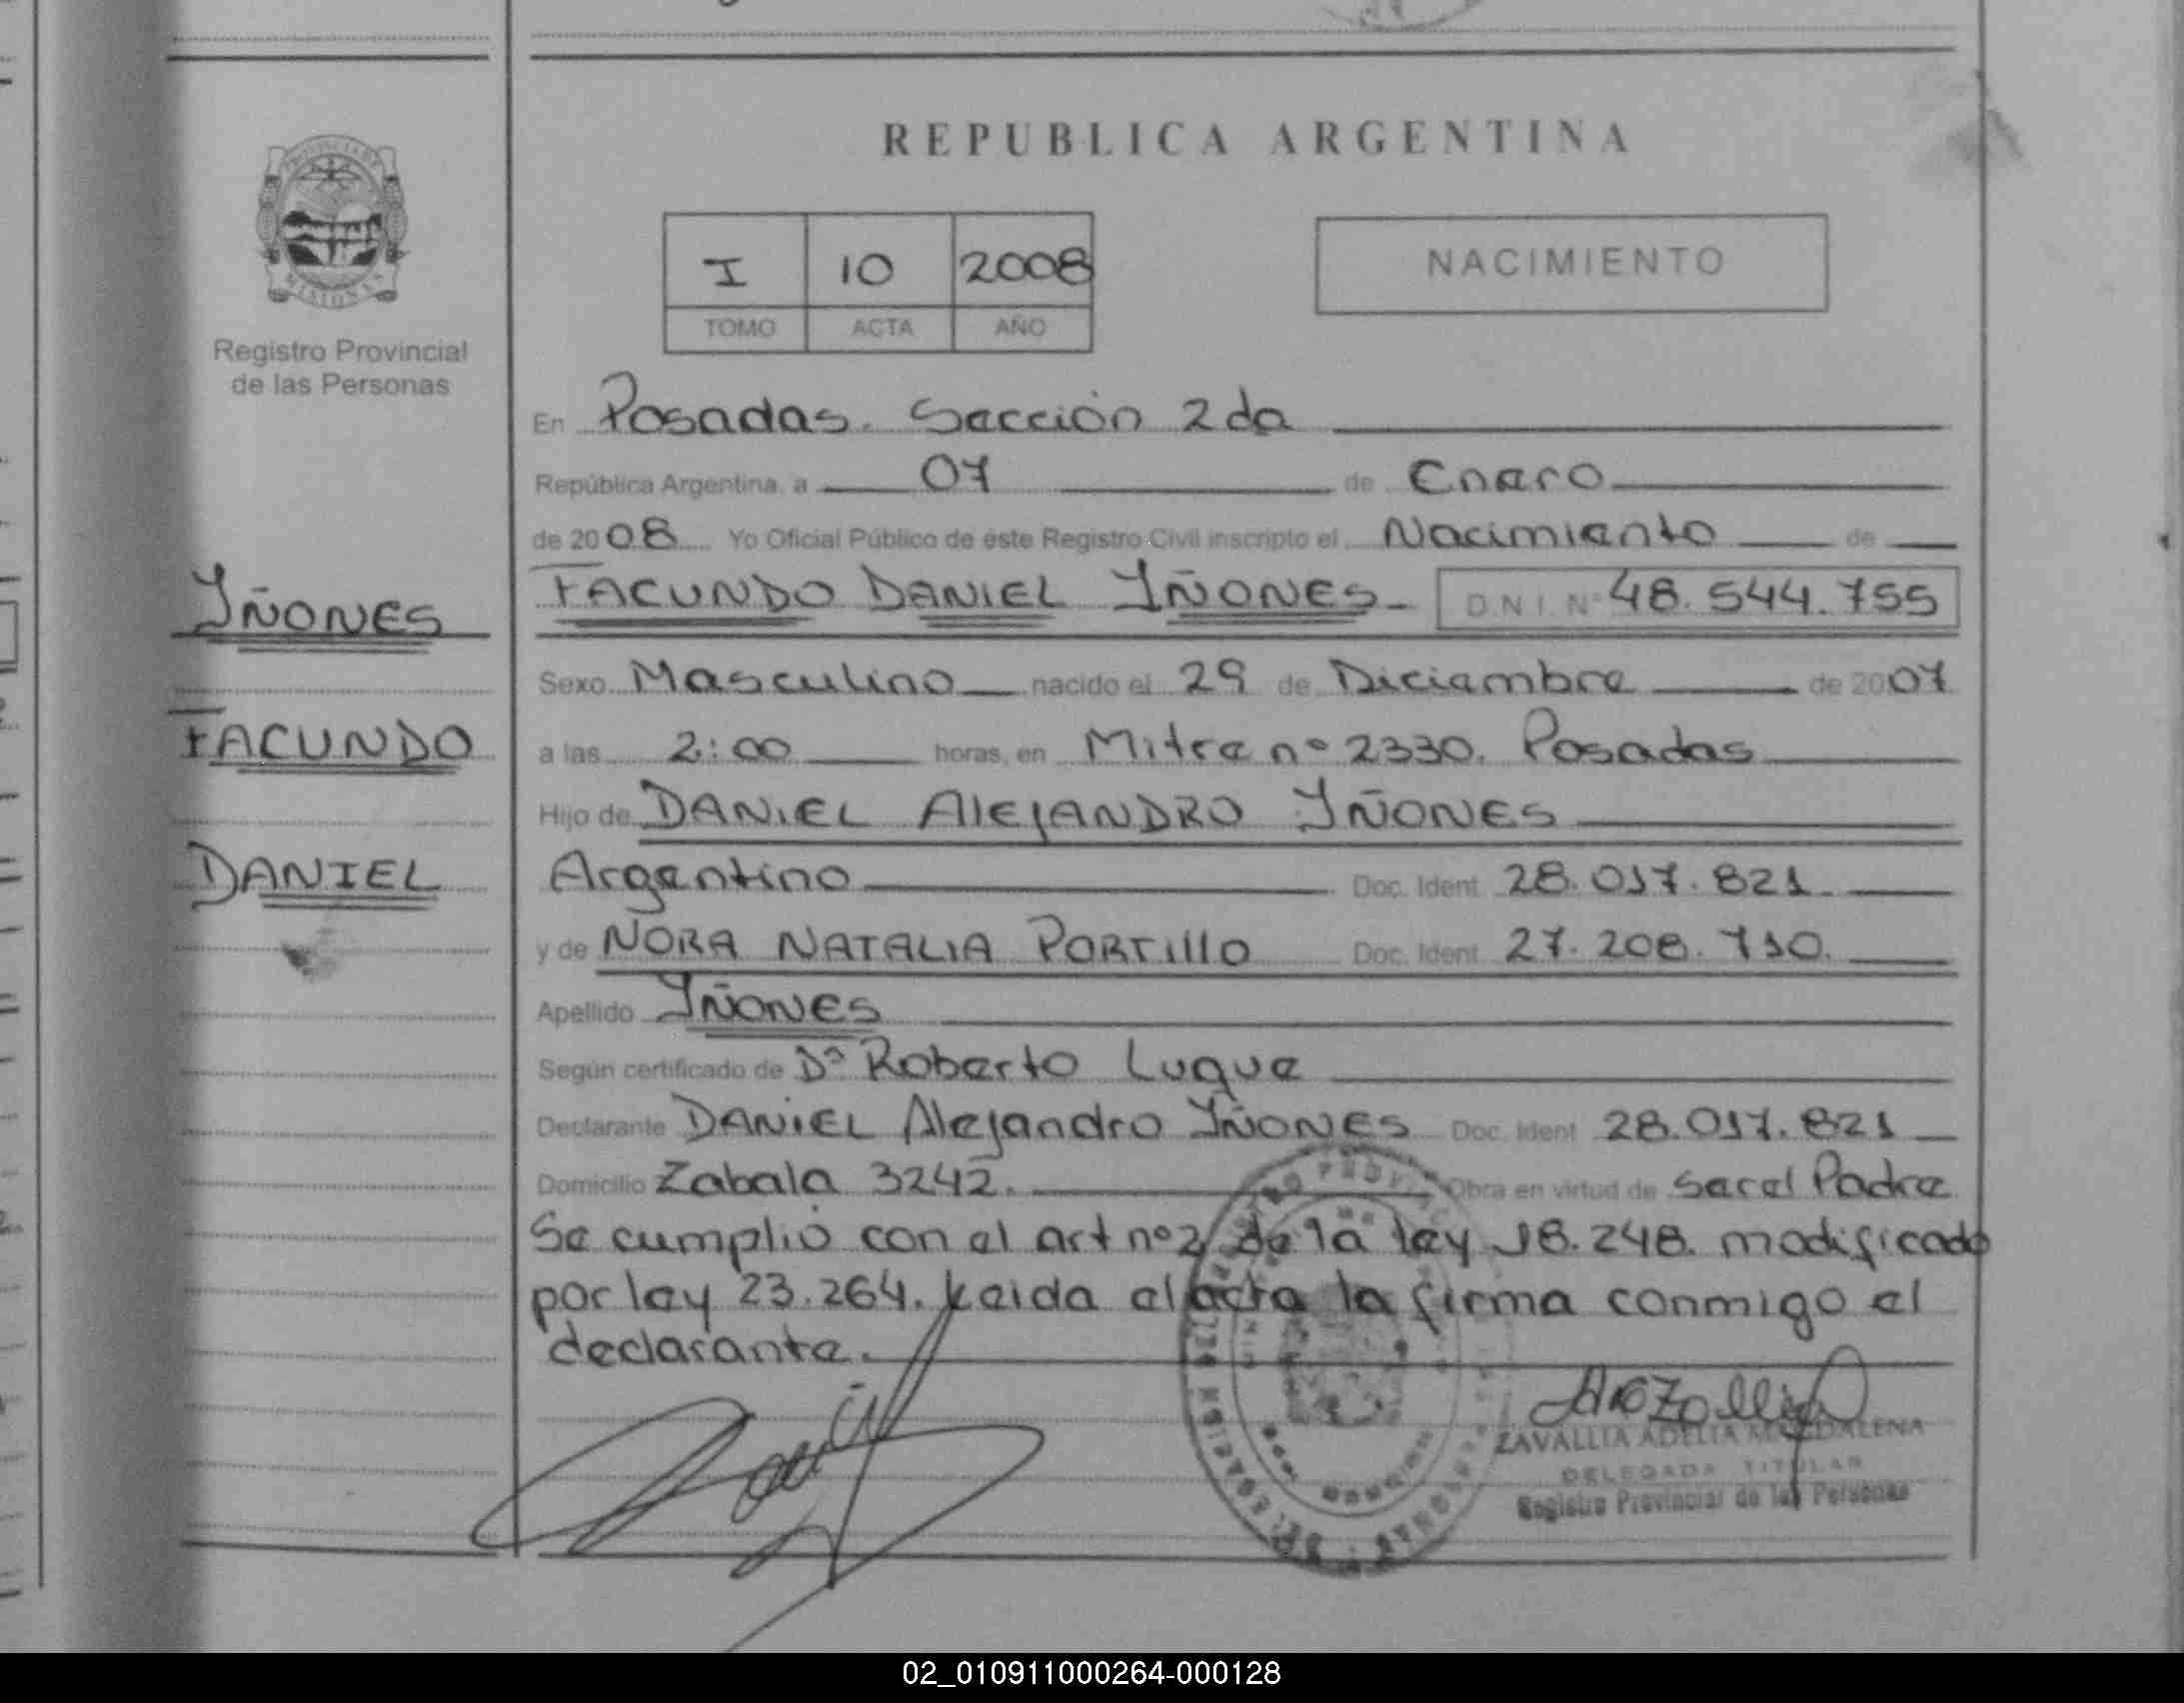 REPUBLICA ARGENTINA
PROVINCIA DE
MISIONES
Registro Provincial
de las Personas
I 10 2008
TOMO ACTA AÑO
NACIMIENTO
En Posadas. Sección 2da
República Argentina, a 07 de Enero
de 2008 Yo Oficial Público de éste Registro Civil inscripto el Nacimiento de
FACUNDO DANIEL IÑONES - D.N.I. Nº 48.544.755
IÑONES
FACUNDO
DANIEL
Sexo Masculino nacido el 29 de Diciembre de 2007
a las 2:00 horas, en Mitre nº 2330. Posadas
Hijo de DANIEL AlEJANDRO IÑONES
Argentino Doc. Ident. 28.017.821.
y de NORA NATALIA PORTIllO Doc. Ident. 27.208.710.
Apellido IÑONES
Según certificado de Dº Roberto Luque
Declarante DANIEL Alejandro IÑONES Doc. Ident 28.017.821
Domicilio Zabala 3242. Obra en virtud de ser el Padre
Se cumplió con el art nº2 de la ley 18.248. modificado
por ley 23.264. Leida el acta la firma conmigo el
declarante.
ZAVALLIA ADELIA MAGDALENA
DELEGADA TITULAR
Registro Provincial de las Personas
02_010911000264-000128